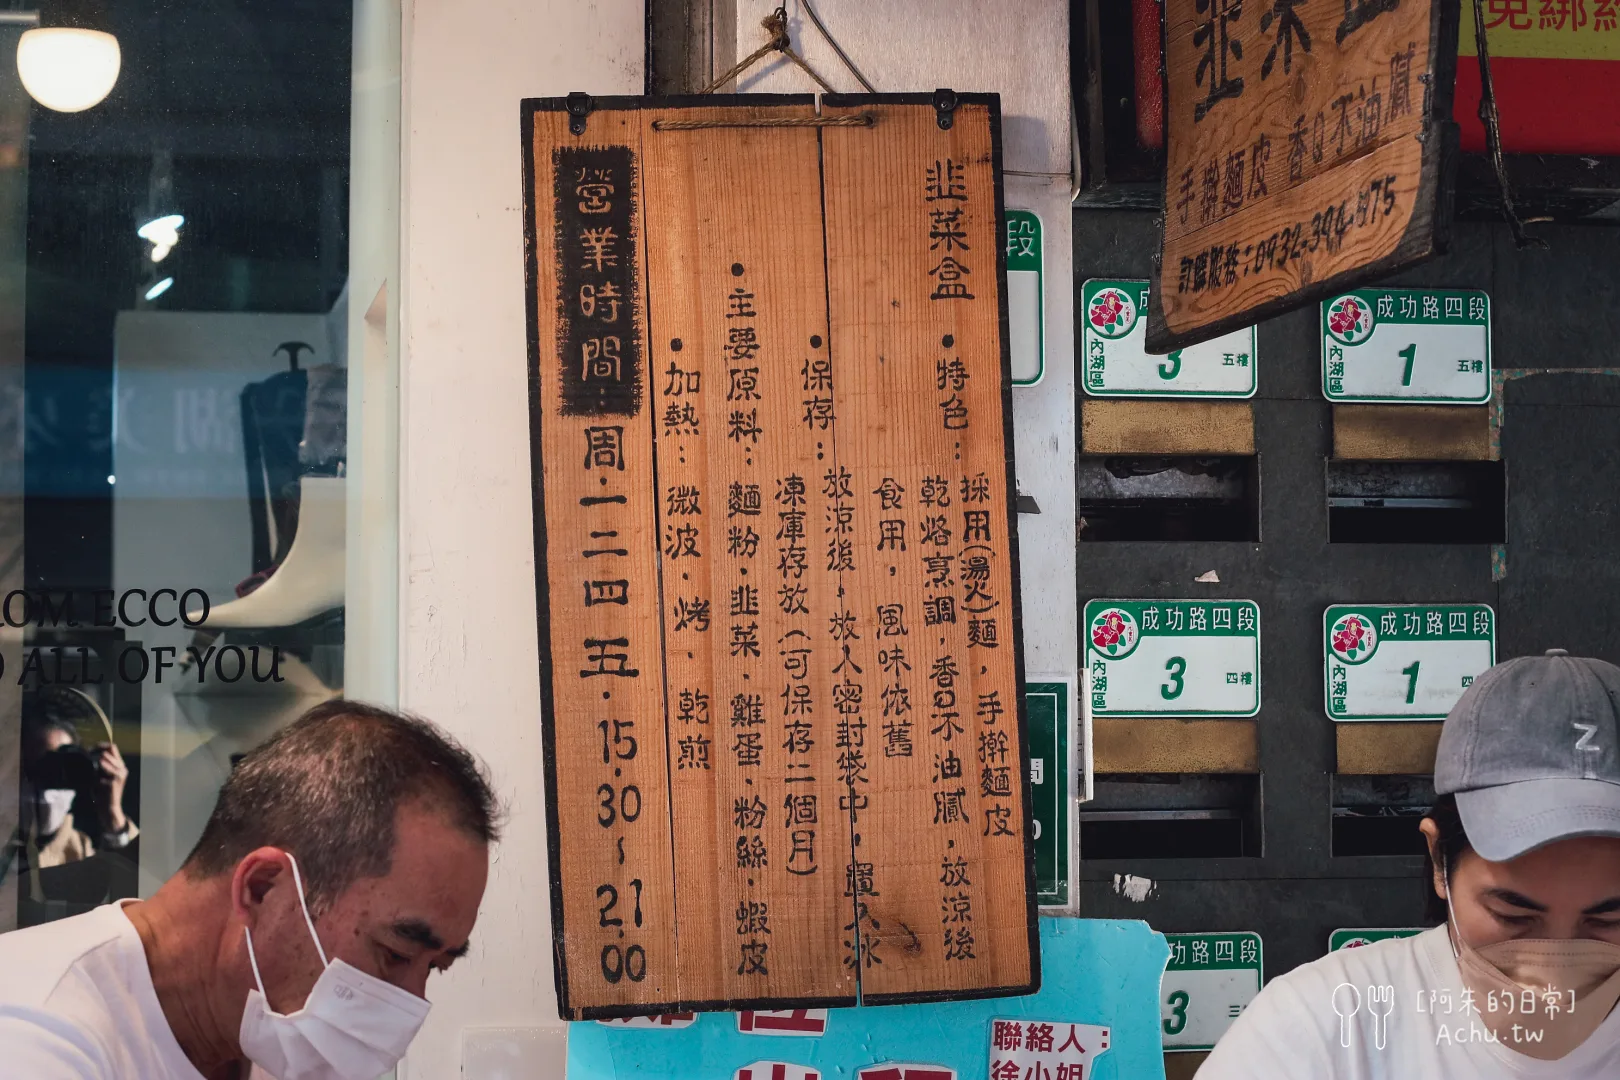 韭菜盒
•特色：採用(湯火)麵，手擀麵皮
乾烙烹調，香Q不油膩，放涼後
食用，風味依舊
•保存：放涼後，放入密封袋中，置入冰
凍庫存放(可保存二個月)
•主要原料：麵粉．韭菜．雞蛋．粉絲．蝦皮
•加熱：微波．烤．乾煎
營業時間：周．一二四五．15.30~21.00
韭菜盒
手擀麵皮 香Q不油膩
訂購服務：0932-394-975
免綁約
段
成功路四段
內湖區
3
五樓
成功路四段
內湖區
1
五樓
成功路四段
內湖區
3
四樓
成功路四段
內湖區
1
四
功路四段
3
聯絡人：
徐小姐
OM ECCO
O ALL OF YOU
Z
[阿朱的日常]
Achu.tw